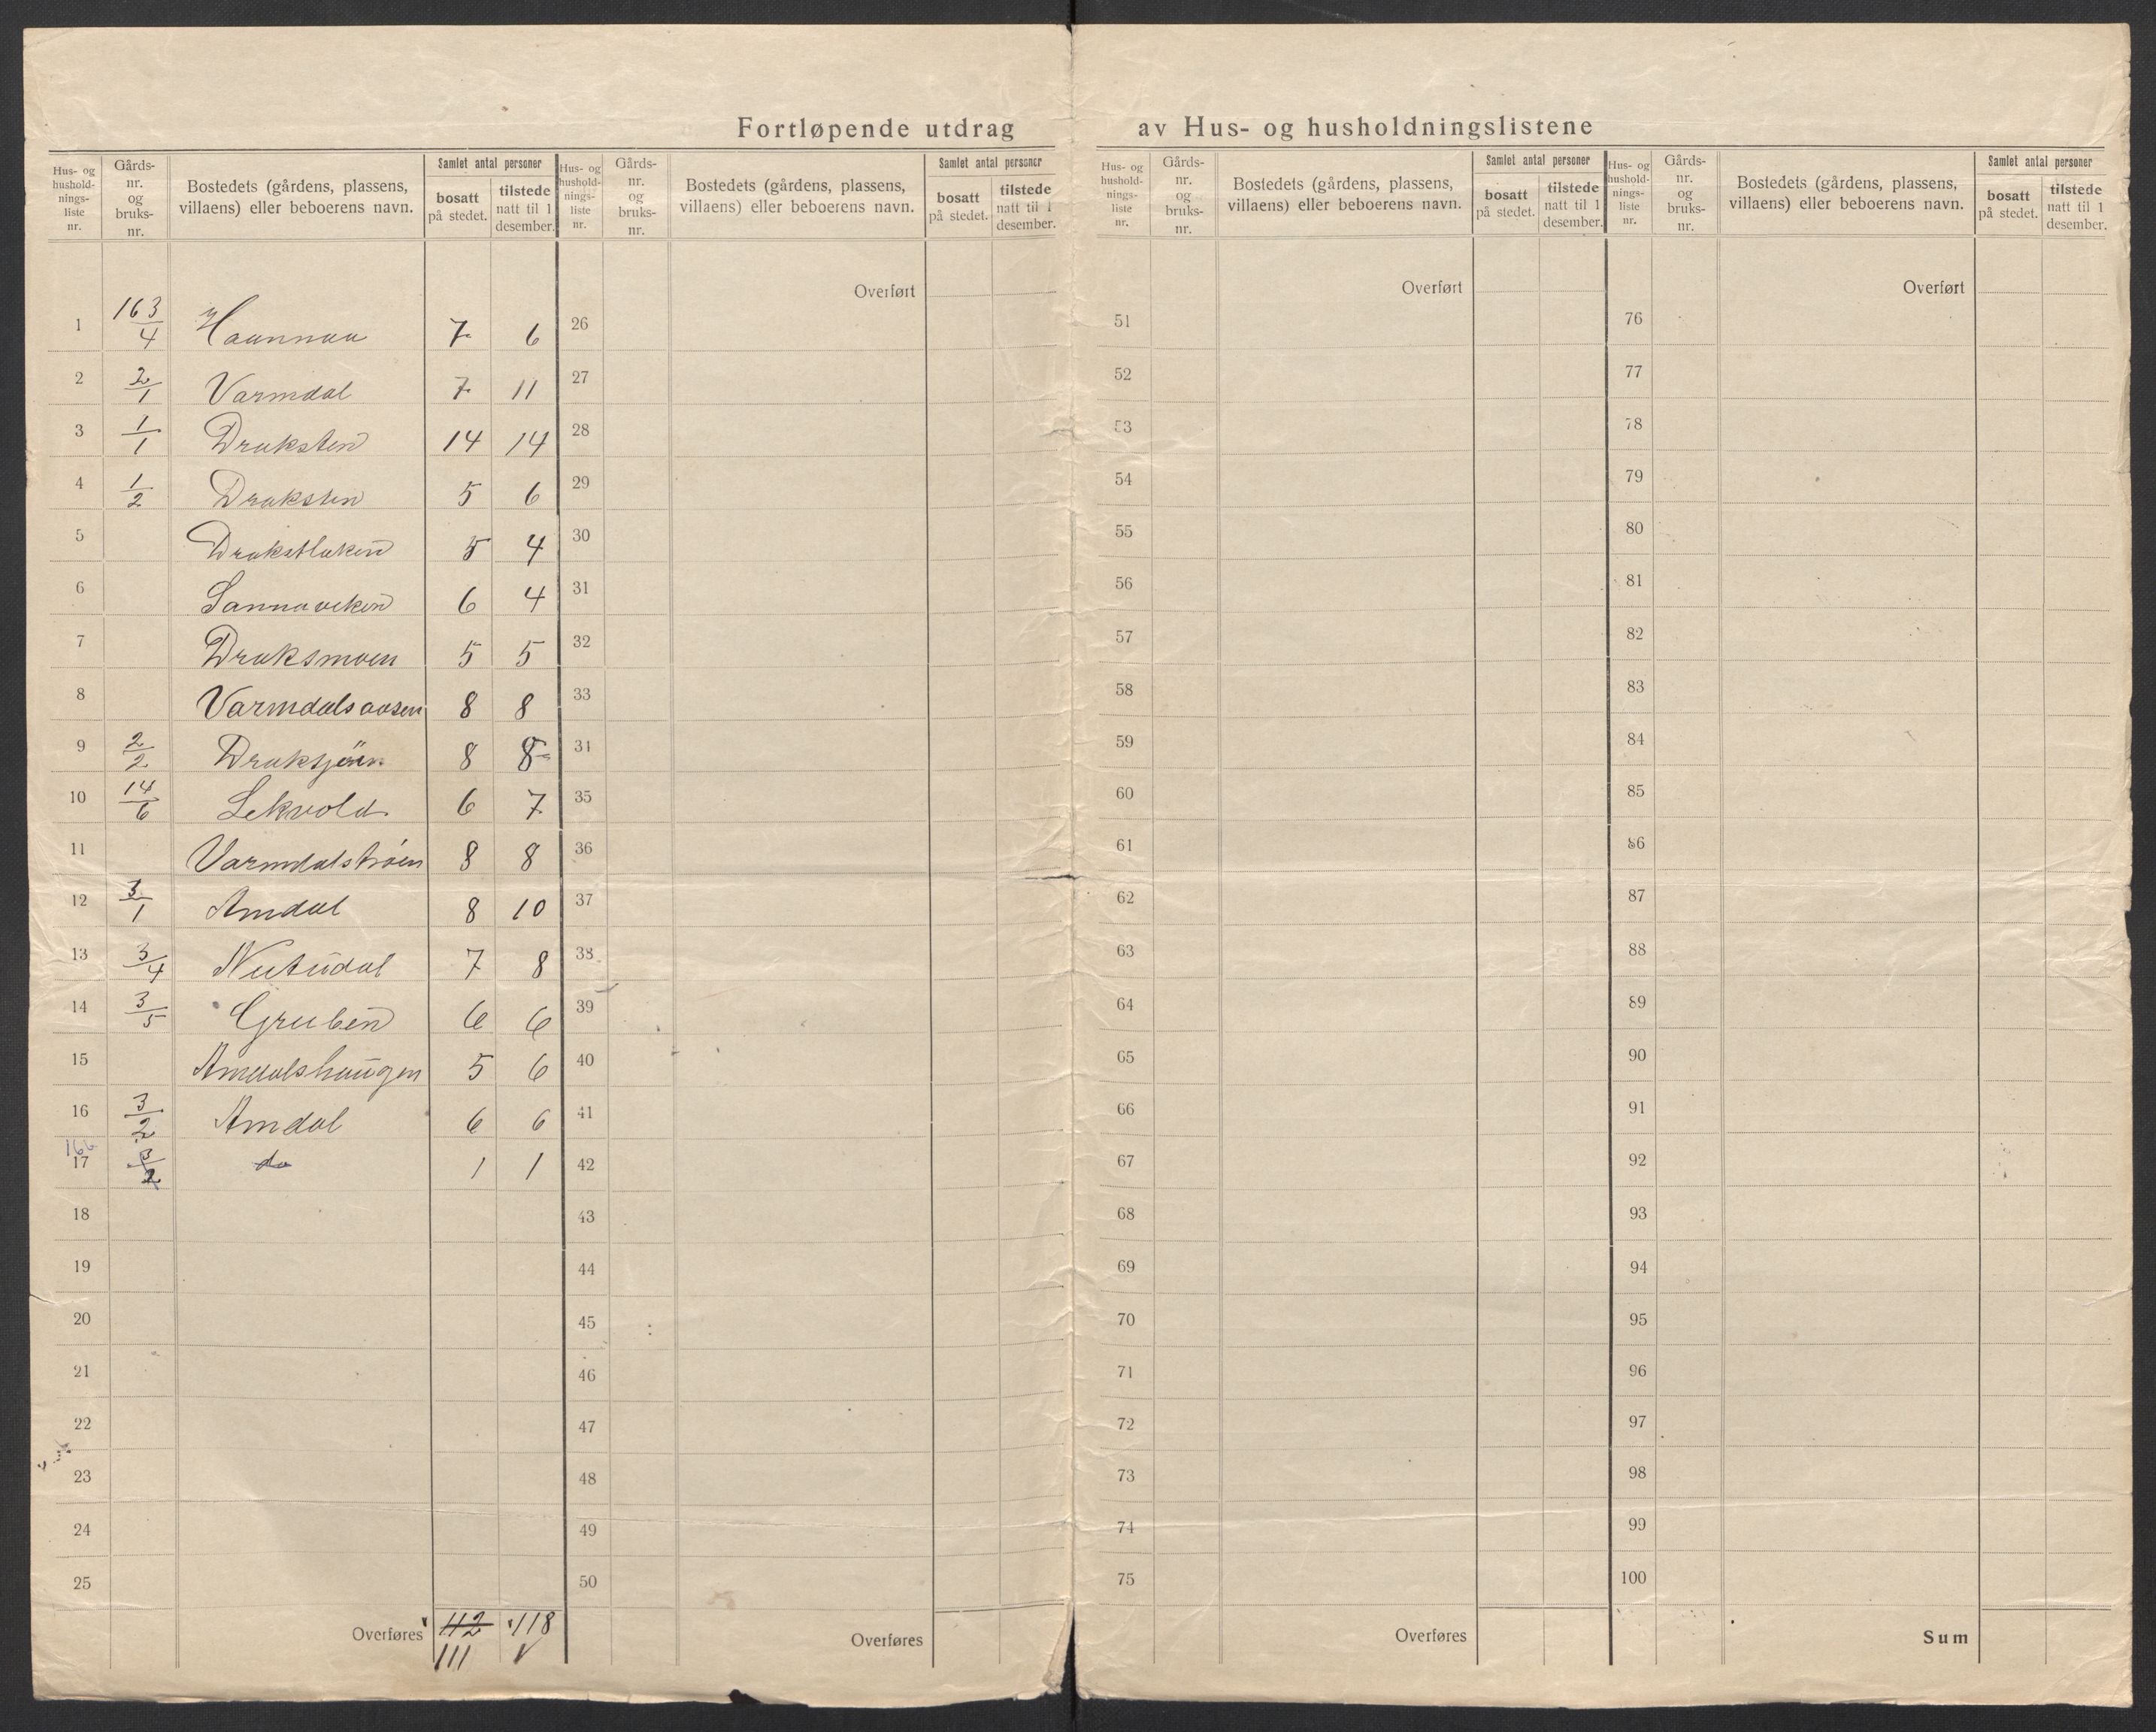 Fortløpende utdrag av Hus- og husholdningslistene
Hus- og hushold- nings- liste nr. | Gårds- nr. og bruks- nr. | Bostedets (gårdens, plassens, villaens) eller beboerens navn. | Samlet antal personer | bosatt på stedet. | tilstede natt til 1 desember.
Hus- og hushold- nings- liste nr. | Gårds- nr. og bruks- nr. | Bostedets (gårdens, plassens, villaens) eller beboerens navn. | Samlet antal personer | bosatt på stedet. | tilstede natt til 1 desember.
Hus- og hushold- nings- liste nr. | Gårds- nr. og bruks- nr. | Bostedets (gårdens, plassens, villaens) eller beboerens navn. | Samlet antal personer | bosatt på stedet. | tilstede natt til 1 desember.
Hus- og hushold- nings- liste nr. | Gårds- nr. og bruks- nr. | Bostedets (gårdens, plassens, villaens) eller beboerens navn. | Samlet antal personer | bosatt på stedet. | tilstede natt til 1 desember.
Overført Overført Overført
1 163/4 Haannaa 7 6 26 51 76
2 2/1 Varmdal 7 11 27 52 77
3 1/1 Draksten 14 14 28 53 78
4 1/2 Draksten 5 6 29 54 79
5 Drakstlaken 5 4 30 55 80
6 Sannaveken 6 4 31 56 81
7 Draksmoen 5 5 32 57 82
8 Varmdalsaasen 8 8 33 58 83
9 2/2 Draksjøen 8 8 34 59 84
10 14/6 Lekvold 6 7 35 60 85
11 Varmdalstrøen 8 8 36 61 86
12 3/1 Amdal 8 10 37 62 87
13 3/4 7 8 38 63 88
14 3/5 Gruben 6 6 39 64 89
15 Amdalshaugen 5 6 40 65 90
16 3/2 Amdal 6 6 41 66 91
17 3/2 do 1 1 42 67 92
18 43 68 93
19 44 69 94
20 45 70 95
21 46 71 96
22 47 72 97
23 48 73 98
24 49 74 99
25 50 75 100
Overføres 112 118 Overføres Overføres Sum
111